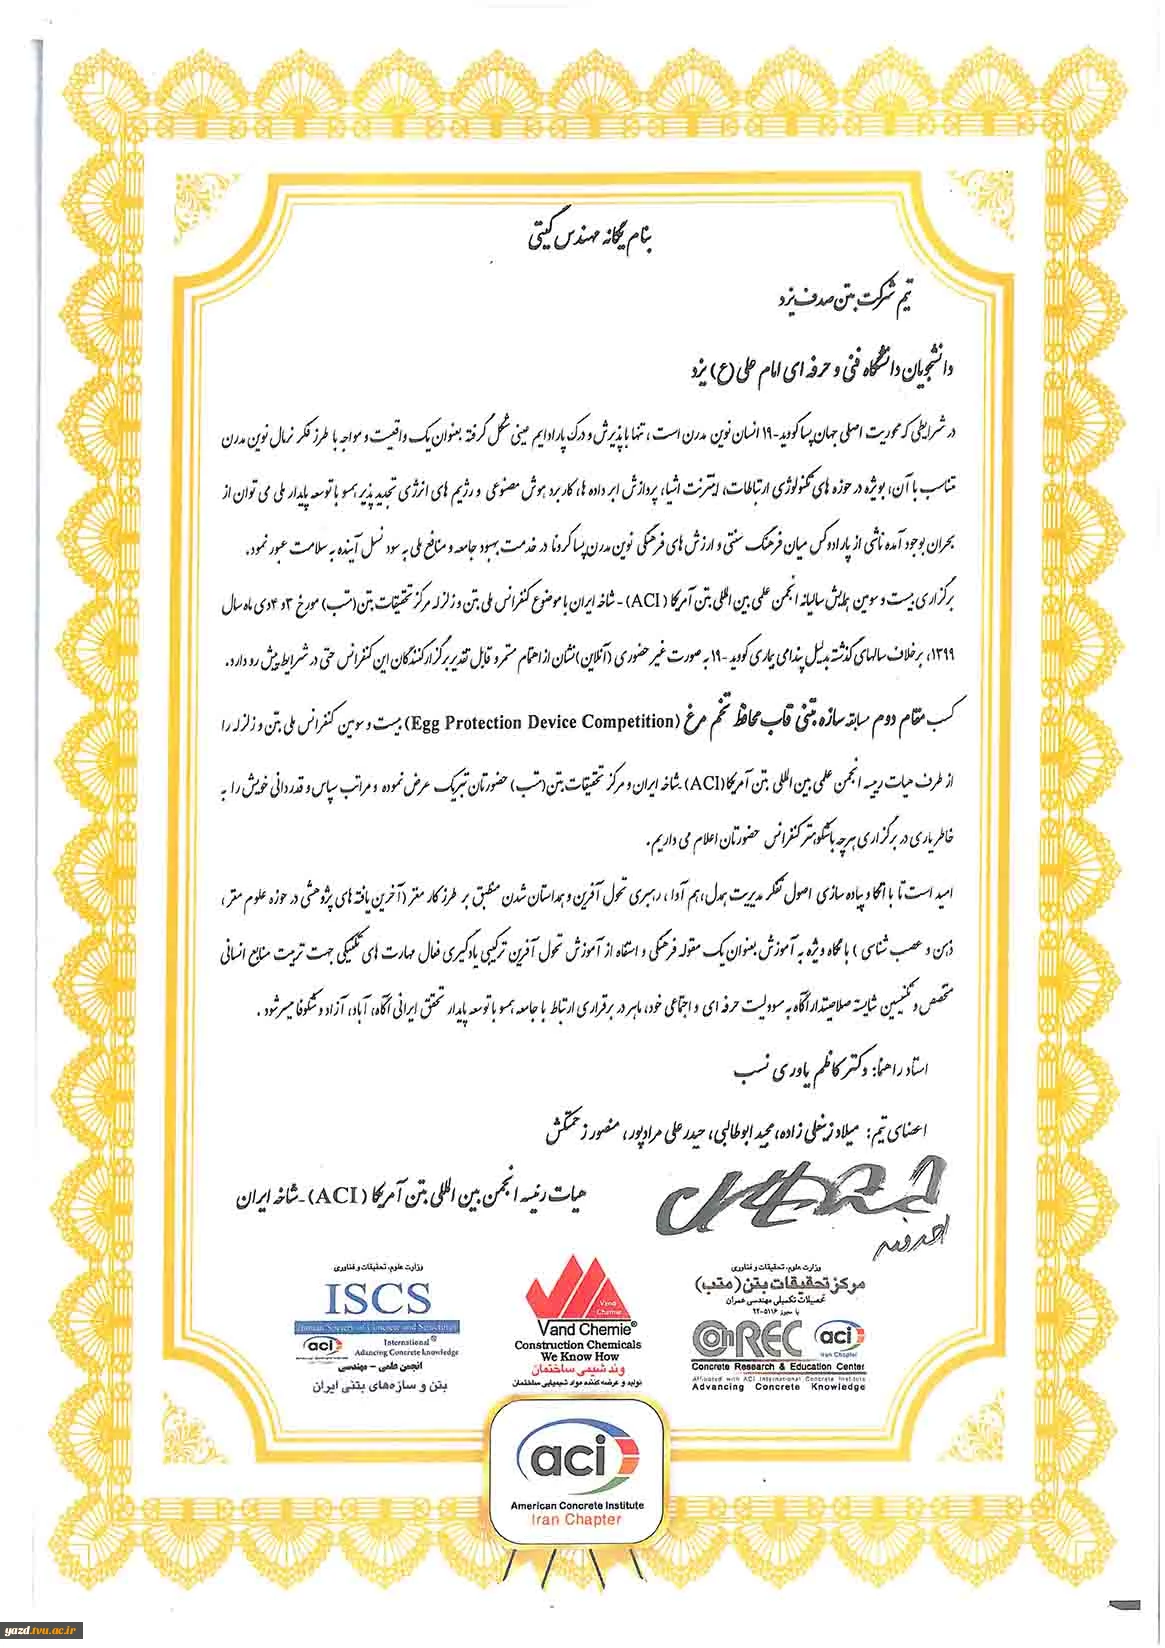 بنام یگانه مهندس گیتی
تیم شرکت بتن صدف یزد
دانشجویان دانشگاه فنی و حرفه ای امام علی (ع) یزد
در شرایطی که محوریت اصلی جهان پسا کووید-۱۹ انسان نوین مدرن است، تنها با پذیرش و درک پارادایم عینی شکل گرفته بعنوان یک واقعیت و مواجه با طرز فکر نرمال نوین مدرن
متناسب با آن، بویژه در حوزه های تکنولوژی ارتباطات، اینترنت اشیا، پردازش ابر داده ها، کاربرد هوش مصنوعی و رژیم های انرژی تجدید پذیر همسو با توسعه پایدار ملی می توان از
بحران بوجود آمده ناشی از پارادوکس میان فرهنگ سنتی و ارزش های فرهنگی نوین مدرن پسا کرونا در خدمت بهبود جامعه و منافع ملی به سود نسل آینده به سلامت عبور نمود.
برگزاری بیست و سومین همایش سالیانه انجمن علمی بین المللی بتن آمریکا (ACI) - شاخه ایران با موضوع کنفرانس ملی بتن و زلزله مرکز تحقیقات بتن(متب) مورخ ۳ و ۴ دی ماه سال
۱۳۹۹، برخلاف سالهای گذشته بدلیل پندامی بیماری کووید -۱۹ به صورت غیر حضوری (آنلاین) نشان از اهتمام مستمر و قابل تقدیر برگزارکنندگان این کنفرانس حتی در شرایط پیش رو دارد.
کسب مقام دوم مسابقه سازه بتنی قاب محافظ تخم مرغ (Egg Protection Device Competition) بیست و سومین کنفرانس ملی بتن و زلزله را
از طرف هیات رییسه انجمن علمی بین المللی بتن آمریکا(ACI)-شاخه ایران و مرکز تحقیقات بتن(متب) حضورتان تبریک عرض نموده و مراتب سپاس و قدردانی خویش را به
خاطر یاری در برگزاری هرچه باشکوهتر کنفرانس حضورتان اعلام می داریم.
امید است تا با اتکا و پیاده سازی اصول تفکر مدیریت همدل، هم آوا، رهبری تحول آفرین و همداستان شدن منطبق بر طرز کار مغز (آخرین یافته های پژوهشی در حوزه علوم مغز،
ذهن و عصب شناسی) با نگاه ویژه به آموزش بعنوان یک مقوله فرهنگی و استفاه از آموزش تحول آفرین ترکیبی یادگیری فعال مهارت های تکنیکی جهت تربیت منابع انسانی
متخصص و تکنسین شایسته صلاحیتدار آگاه به مسوولیت حرفه ای و اجتماعی خود، ماهر در برقراری ارتباط با جامعه همسو با توسعه پایدار تحقق ایرانی آگاه، آباد، آزاد و شکوفا میسر شود.
استاد راهنما: دکتر کاظم یاوری نسب
اعضای تیم: میلاد زینعلی زاده، مجید ابوطالبی، حیدر علی مرادپور، منصور زحمتکش
هیات رئیسه انجمن بین المللی بتن آمریکا (ACI)-شاخه ایران
وزارت علوم، تحقیقات و فناوری
مرکز تحقیقات بتن (متب)
تحصیلات تکمیلی مهندسی عمران
با مجوز ۲۲-۵۱۱۶
ConREC
aci
Iran Chapter
Concrete Research & Education Center
Affiliated with ACI International Concrete Institute
Advancing Concrete Knowledge
Vand Chemie
Vand Chemie®
Construction Chemicals
We Know How
وند شیمی ساختمان
تولید و عرضه کننده مواد شیمیایی ساختمان
وزارت علوم، تحقیقات و فناوری
ISCS
Iranian Society of Concrete and Structures
aci International®
Advancing Concrete knowledge
انجمن علمی - مهندسی
بتن و سازه‌های بتنی ایران
aci
American Concrete Institute
Iran Chapter
yazd.tvu.ac.ir